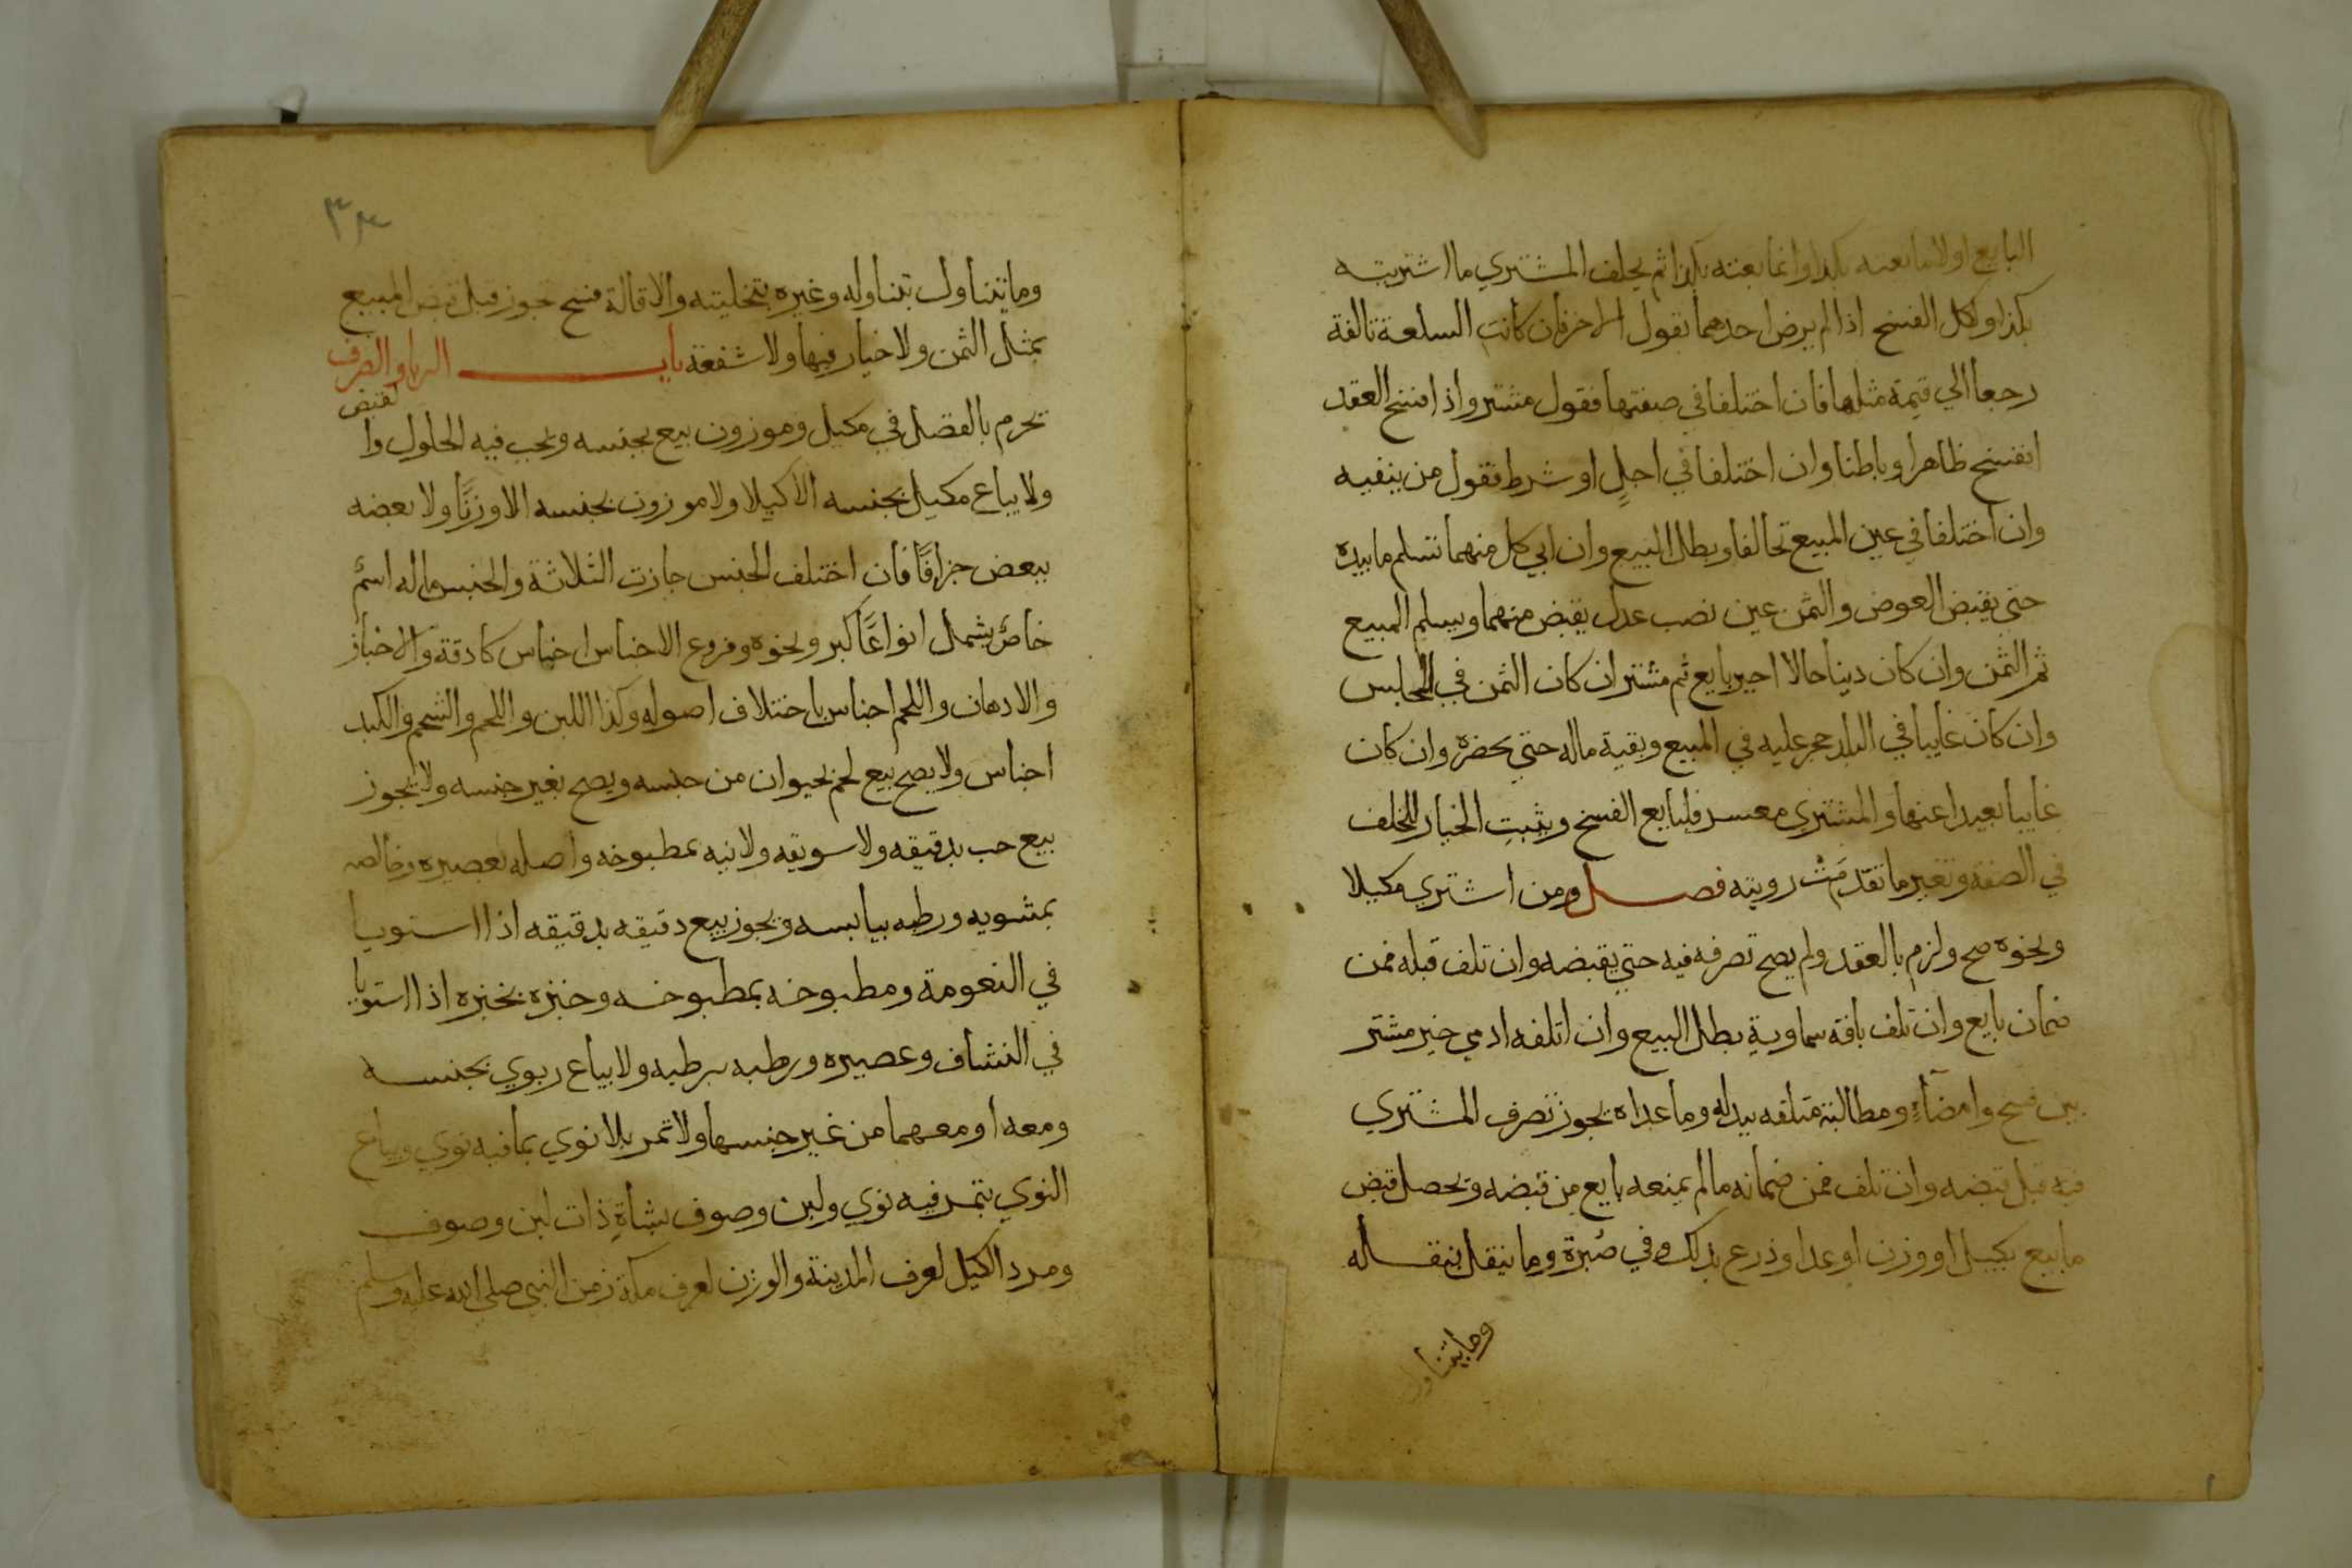 البايع اولا ما بعته بكذا وانما بعته بكذا ثم يحلف المشتري ما اشتريته
بكذا ولكل الفسخ اذا لم يرض احدهما بقول الاخر فان كانت السلعة تالفة
رجعا الي قيمة مثلها فان اختلفا في صفتها فقول مشتر واذا افسخ العقد
انفسخ ظاهرا وباطنا وان اختلفا في اجلٍ او شرط فقول من ينفيه
وان اختلفا في عين المبيع تحالفا وبطل البيع وان ابي كل منهما تسلم ما بيده
حتي يقبض العوض والثمن عين نصب عدل يقبض منهما ويسلم المبيع
ثم الثمن وان كان دينا حالا اجير بايع ثم مشتر ان كان الثمن في المجلس
وان كان غايبا في البلد حجر عليه في المبيع وبقية ماله حتي يحضره وان كان
غايبا بعيدا عنها والمشتري معسر فلبايع الفسخ ويثبت الخيار للخلف
في الصفة وتغير ما تقدمت رويته فصل ومن اشتري مكيلا
ونحوه صح ولزم بالعقد ولم يصح تصرفه فيه حتي يقبضه وان تلف قبله فمن
ضمان بايع وان تلف بافة سماوية بطل البيع وان اتلفه ادمي خير مشتر
بين فسخ وامضآءٍ ومطالبة متلفه ببدله وما عداه يجوز تصرف المشتري
فيه قبل قبضه وان تلف فمن ضمانه ما لم يمنعه بايع من قبضه ويحصل قبض
ما بيع بكيل او وزن او عد او ذرع بذلك وفي صُبرة وما ينقل بنقله
وما يتناول
٣٣
وما يتناول بتناوله وغيره بتخليته والاقالة فسخ تجوز قبل قبض المبيع
بمثل الثمن ولا خيار فيها ولا شفعة باب الربا والصرف
يحرم بالفضل في مكيل وموزون بيع بجنسه ويجب فيه الحلول والقبض
ولا يباع مكيل بجنسه الا كيلا ولا موزون بجنسه الا وزنًا ولا بعضه
ببعض جزافًا فان اختلف الجنس جازت الثلاثة والجنس ما له اسمٌ
خاصٌ يشمل انواعًا كبر ونحوه وفروع الاجناس اجناس كادقة والاخباز
والادهان واللحم اجناس باختلاف اصوله وكذا اللبن واللحم والشحم والكبد
اجناس ولا يصح بيع لحم بحيوان من جنسه ويصح بغير جنسه ولا يجوز
بيع حب بدقيقه ولا سويقه ولا نيه بمطبوخه واصله بعصيره وخالصه
بمشوبه ورطبه بيابسه ويجوز بيع دقيقه بدقيقه اذا استويا
في النعومة ومطبوخه بمطبوخه وخبزه بخبزه اذا استويا
في النشاف وعصيره ورطبه برطبه ولا يباع ربوي بجنسه
ومعه او معهما من غير جنسها ولا تمر بلا نوي بما فيه نوي ويباع
النوي بتمر فيه نوي ولبن وصوف بشاةٍ ذات لبن وصوف
ومرد الكيل لعرف المدينة والوزن لعرف مكة زمن النبي صلي الله عليه وسلم